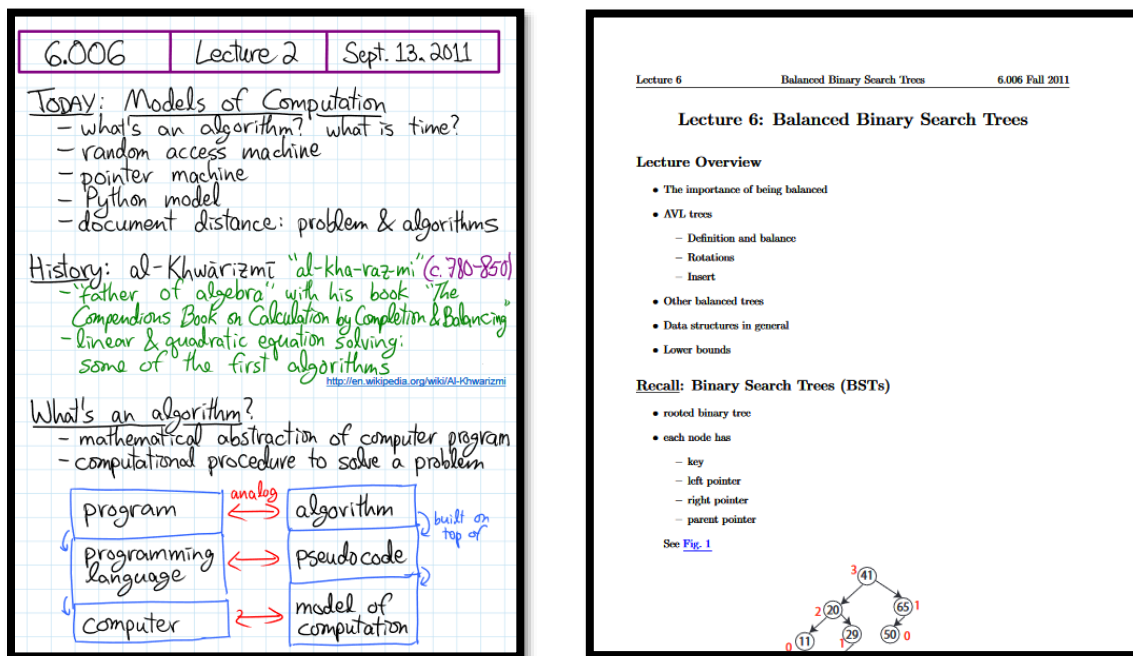 6.006 Lecture 2 Sept. 13, 2011
TODAY: Models of Computation
- what's an algorithm? what is time?
- random access machine
- pointer machine
- Python model
- document distance: problem & algorithms
History: al-Khwārizmī "al-kha-raz-mi" (c. 780-850)
- "father of algebra" with his book "The
Compendious Book on Calculation by Completion & Balancing"
- linear & quadratic equation solving:
some of the first algorithms
http://en.wikipedia.org/wiki/Al-Khwarizmi
What's an algorithm?
- mathematical abstraction of computer program
- computational procedure to solve a problem
analog
program algorithm
built on
top of
programming
language
pseudocode
computer
model of
computation
Lecture 6 Balanced Binary Search Trees 6.006 Fall 2011
Lecture 6: Balanced Binary Search Trees
Lecture Overview
• The importance of being balanced
• AVL trees
– Definition and balance
– Rotations
– Insert
• Other balanced trees
• Data structures in general
• Lower bounds
Recall: Binary Search Trees (BSTs)
• rooted binary tree
• each node has
– key
– left pointer
– right pointer
– parent pointer
See Fig. 1
3 41
2 20 65 1
0 11 1 29 50 0